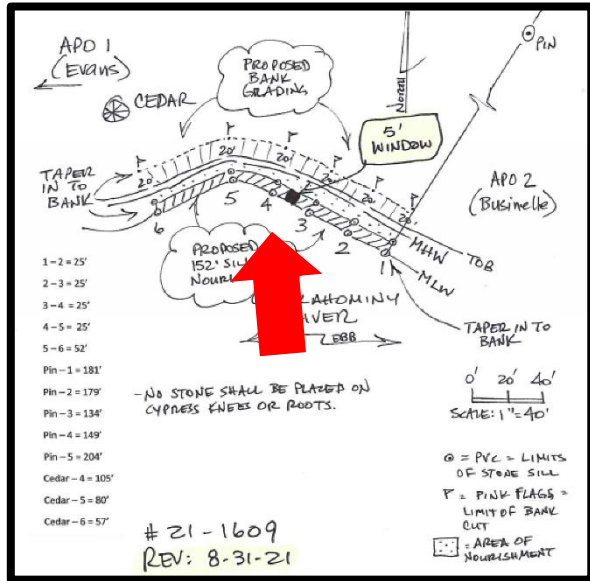 APO 1
(Evans)
CEDAR
PROPOSED
BANK
GRADING
NORTH
PIN
5'
WINDOW
APO 2
(Businelle)
TAPER
IN TO
BANK
20'
20'
20'
20'
20'
6
5
4
3
2
1
MHW
TOB
MLW
PROPOSED
152' SILL
NOURI
AHOMINY
VER
EBB
TAPER IN TO
BANK
1-2 = 25'
2-3 = 25'
3-4 = 25'
4-5 = 25'
5-6 = 52'
Pin-1 = 181'
Pin-2 = 179'
Pin-3 = 134'
Pin-4 = 149'
Pin-5 = 204'
Cedar-4 = 105'
Cedar-5 = 80'
Cedar-6 = 57'
-NO STONE SHALL BE PLACED ON
CYPRESS KNEES OR ROOTS.
0' 20' 40'
SCALE: 1"=40'
= PVC = LIMITS
OF STONE SILL
= PINK FLAGS =
LIMIT OF BANK
CUT
= AREA OF
NOURISHMENT
# 21-1609
REV: 8-31-21